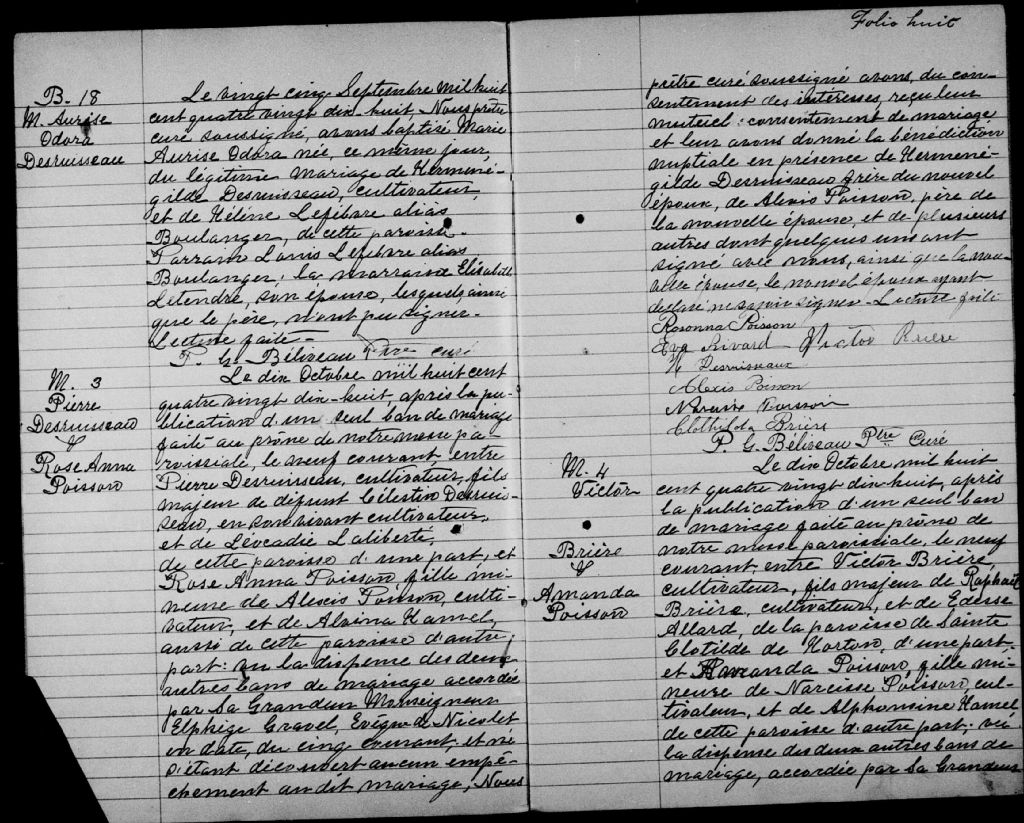 Folio huit
B. 18
M. Aurise
Odora
Desruisseau
Le vingt cinq Septembre mil huit
cent quatre vingt dix-huit, Nous prêtre
curé soussigné, avons baptisé Marie
Aurise Odora née, ce même jour,
du légitime mariage de Herminé-
gilde Desruisseau, cultivateur,
et de Hélène Lefebvre alias
Boulanger, de cette paroisse.
Parrain Louis Lefebvre alias
Boulanger; la marraine Elisabeth
Letendre, son épouse, lesquels ainsi
que le père, n'ont pu signer.
Lecture faite.
P. G. Béliveau Ptre curé
M. 3
Pierre
Desruisseau
&
Rose Anna
Poisson
Le dix Octobre mil huit cent
quatre vingt dix-huit, après la pu-
blication d'un seul ban de mariage
faite au prône de notre messe pa-
roissiale, le neuf courant entre
Pierre Desruisseau, cultivateur, fils
majeur de défunt Célestin Desruis-
seau, en son vivant cultivateur,
et de Léocadie Laliberté,
de cette paroisse d'une part, et
Rose Anna Poisson, fille mi-
neure de Alexis Poisson, culti-
vateur, et de Alvina Hamel,
aussi de cette paroisse d'autre
part: vu la dispense des deux
autres bans de mariage accordée
par Sa Grandeur Monseigneur
Elphège Gravel, Evêque de Nicolet
en date, du cinq courant, et ne
s'étant découvert aucun empê-
chement au dit mariage, Nous
prêtre curé soussigné avons, du con-
sentement des intéressés, reçu leur
mutuel consentement de mariage
et leur avons donné la bénédiction
nuptiale en présence de Hermené-
gilde Desruisseau frère du nouvel
époux, de Alexis Poisson, père de
la nouvelle épouse, et de plusieurs
autres dont quelques uns ont
signé avec nous, ainsi que la nou-
velle épouse, le nouvel époux ayant
déclaré ne savoir signer. Lecture faite
Rosanna Poisson
Eva Rivard Victor Brière
H Desruisseaux
Alexis Poisson
Narcisse Poisson
Clothilda Brière
P. G. Béliveau Ptre Curé
M. 4
Victor
Brière
&
Amanda
Poisson
Le dix Octobre mil huit
cent quatre vingt dix-huit, après
la publication d'un seul ban
de mariage faite au prône de
notre messe paroissiale, le neuf
courant, entre Victor Brière,
cultivateur, fils majeur de Raphaël
Brière, cultivateur, et de Edesse
Allard, de la paroisse de Sainte
Clotilde de Horton, d'une part,
et Amanda Poisson, fille mi-
neure de Narcisse Poisson, cul-
tivateur, et de Alphonsine Hamel
de cette paroisse d'autre part; vu
la dispense des deux autres bans de
mariage, accordée par Sa Grandeur